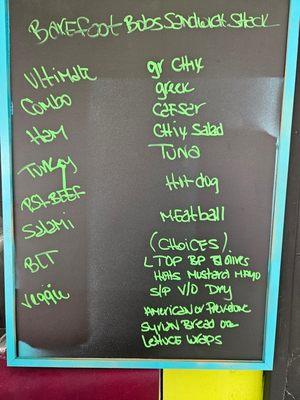 Barefoot Bobs Sandwich Shack
Ultimate
Combo
Ham
Turkey
Rst-Beef
Salami
BLT
Veggie
gr Chix
greek
Caesar
Chix Salad
Tuna
Hot dog
Meatball
(Choices)
LTOP BP Bl Olives
Hots Mustard Mayo
S/P V/O Dry
American or Provolone
Bread or
Lettuce Wraps